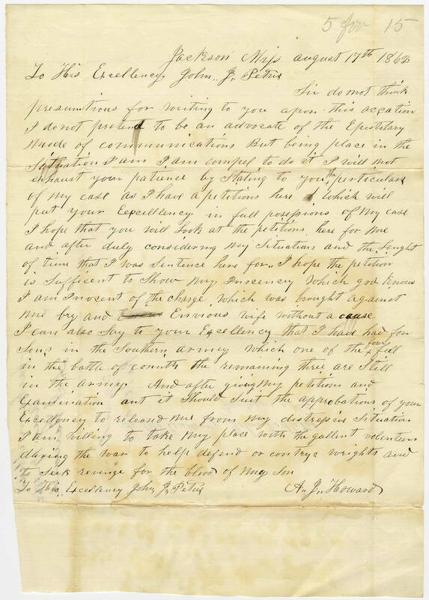 5 for 15
Jackson Miss august 17th 1862
To His Excellency John J. Pettus
Sir do not think
presumtious for writing to you upon this occation
I do not pretend to be an advocate of the Epistelary
mode of communications But being place in the
Situation I am I am compel to do it I will not
exhaust your patience by Stating to you the particulars
of my case as I have a petitions here which will
put your Excellency in full possesions of My case
I hope that you will Look at the petitions here for me
and after duly considering my Situations and the lenght
of time that I was Sentence here for. I hope the petition
is Sufficent to Show My Inocency Which god knows
I am Inocent of the charge which was brought against
me by and Envious wife without a cause
I can also Say to your Excellency that I have had four
Sons in the Southern armey Which one of the four fell
in the battle of the remaining three are Still
in the armey. And after giving My petitions and
Examination and it Should Suit the approbations of your
Excelloncy to release me from My distressin Situation
I am willing to take My place with the gallent volunteers
during the War to help defend or contrys wrights and
to Seek revenge for the blood of My Son
To His Excellency John J. Pettus A. J. Howard